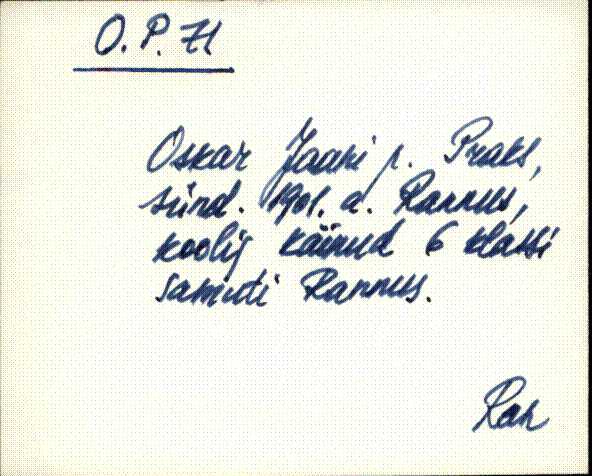 O. P. 71
Oskar Jaani p. Praks,
sünd. 1901. a. Rannus,
koolis käinud 6 klassi
samuti Rannus.
Ran